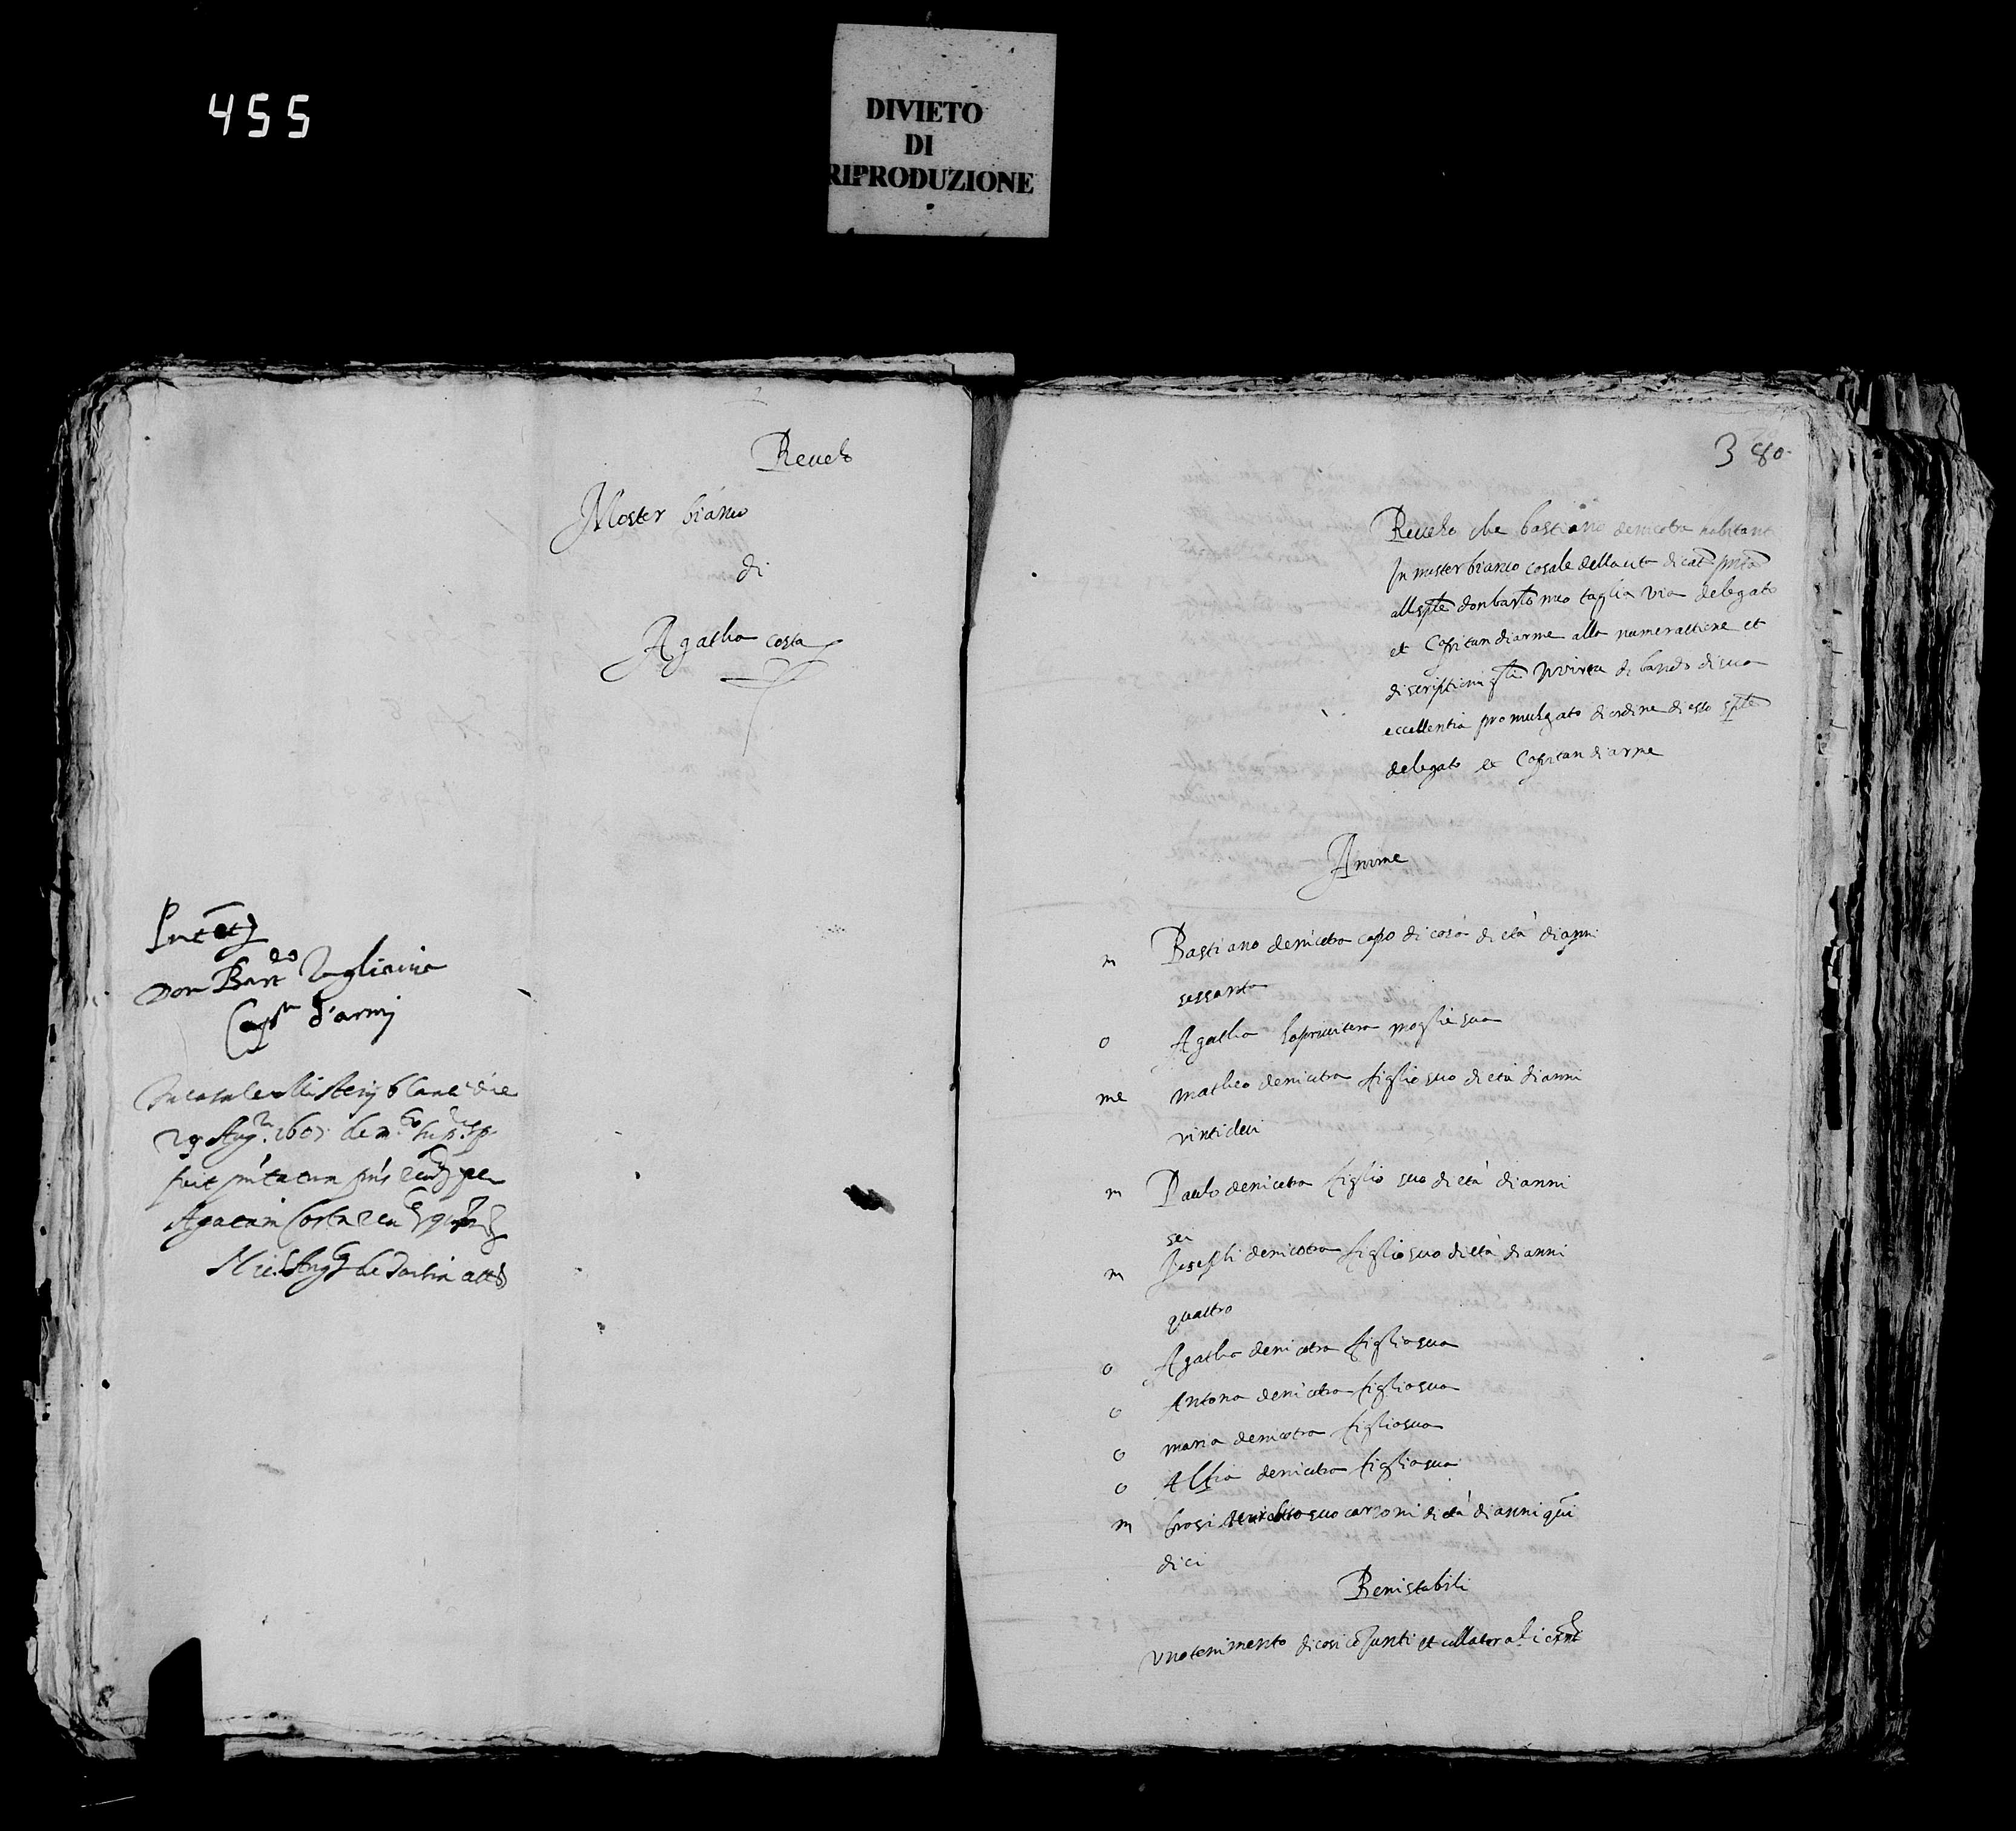 455
DIVIETO
DI
RIPRODUZIONE
Revelo
Moster bianco
di
Agatha costa
Don Bart.eo Tagliavia
Cap.n d'armi
In casale Misterij blanci die
29 Aug.ti 1607 de m.to
fuit p'ntatum per
Agatam Costa
380
Revelo che bastiano denicotra habitanti
In musterbianco casale della cita di cat. p'nta
all sp.le don barto meo taglia via delegato
et Capitan diarme alla numerattione et
discriptioni fta Iuxta lo bando di sua
eccellentia promulgato di ordine di esso sp.le
delegato et Capitan diarme
Anime
m Bastiano denicotra capo di casa di eta dianni
sessanta
o Agatha moglie sua
me matheo denicotra figlio suo di eta dianni
vinti
m Paulo denicotra figlio suo di eta dianni
sei
m Josephi denicotra figlio suo di eta dianni
quattro
o Agatha denicotra figlia sua
o Antona denicotra figlia sua
o maria denicotra figlia sua
o Alfia denicotra figlia sua
m suo carzoni di eta dianni qui
dici
Beni stabili
uno tenimento di casi et collaterali